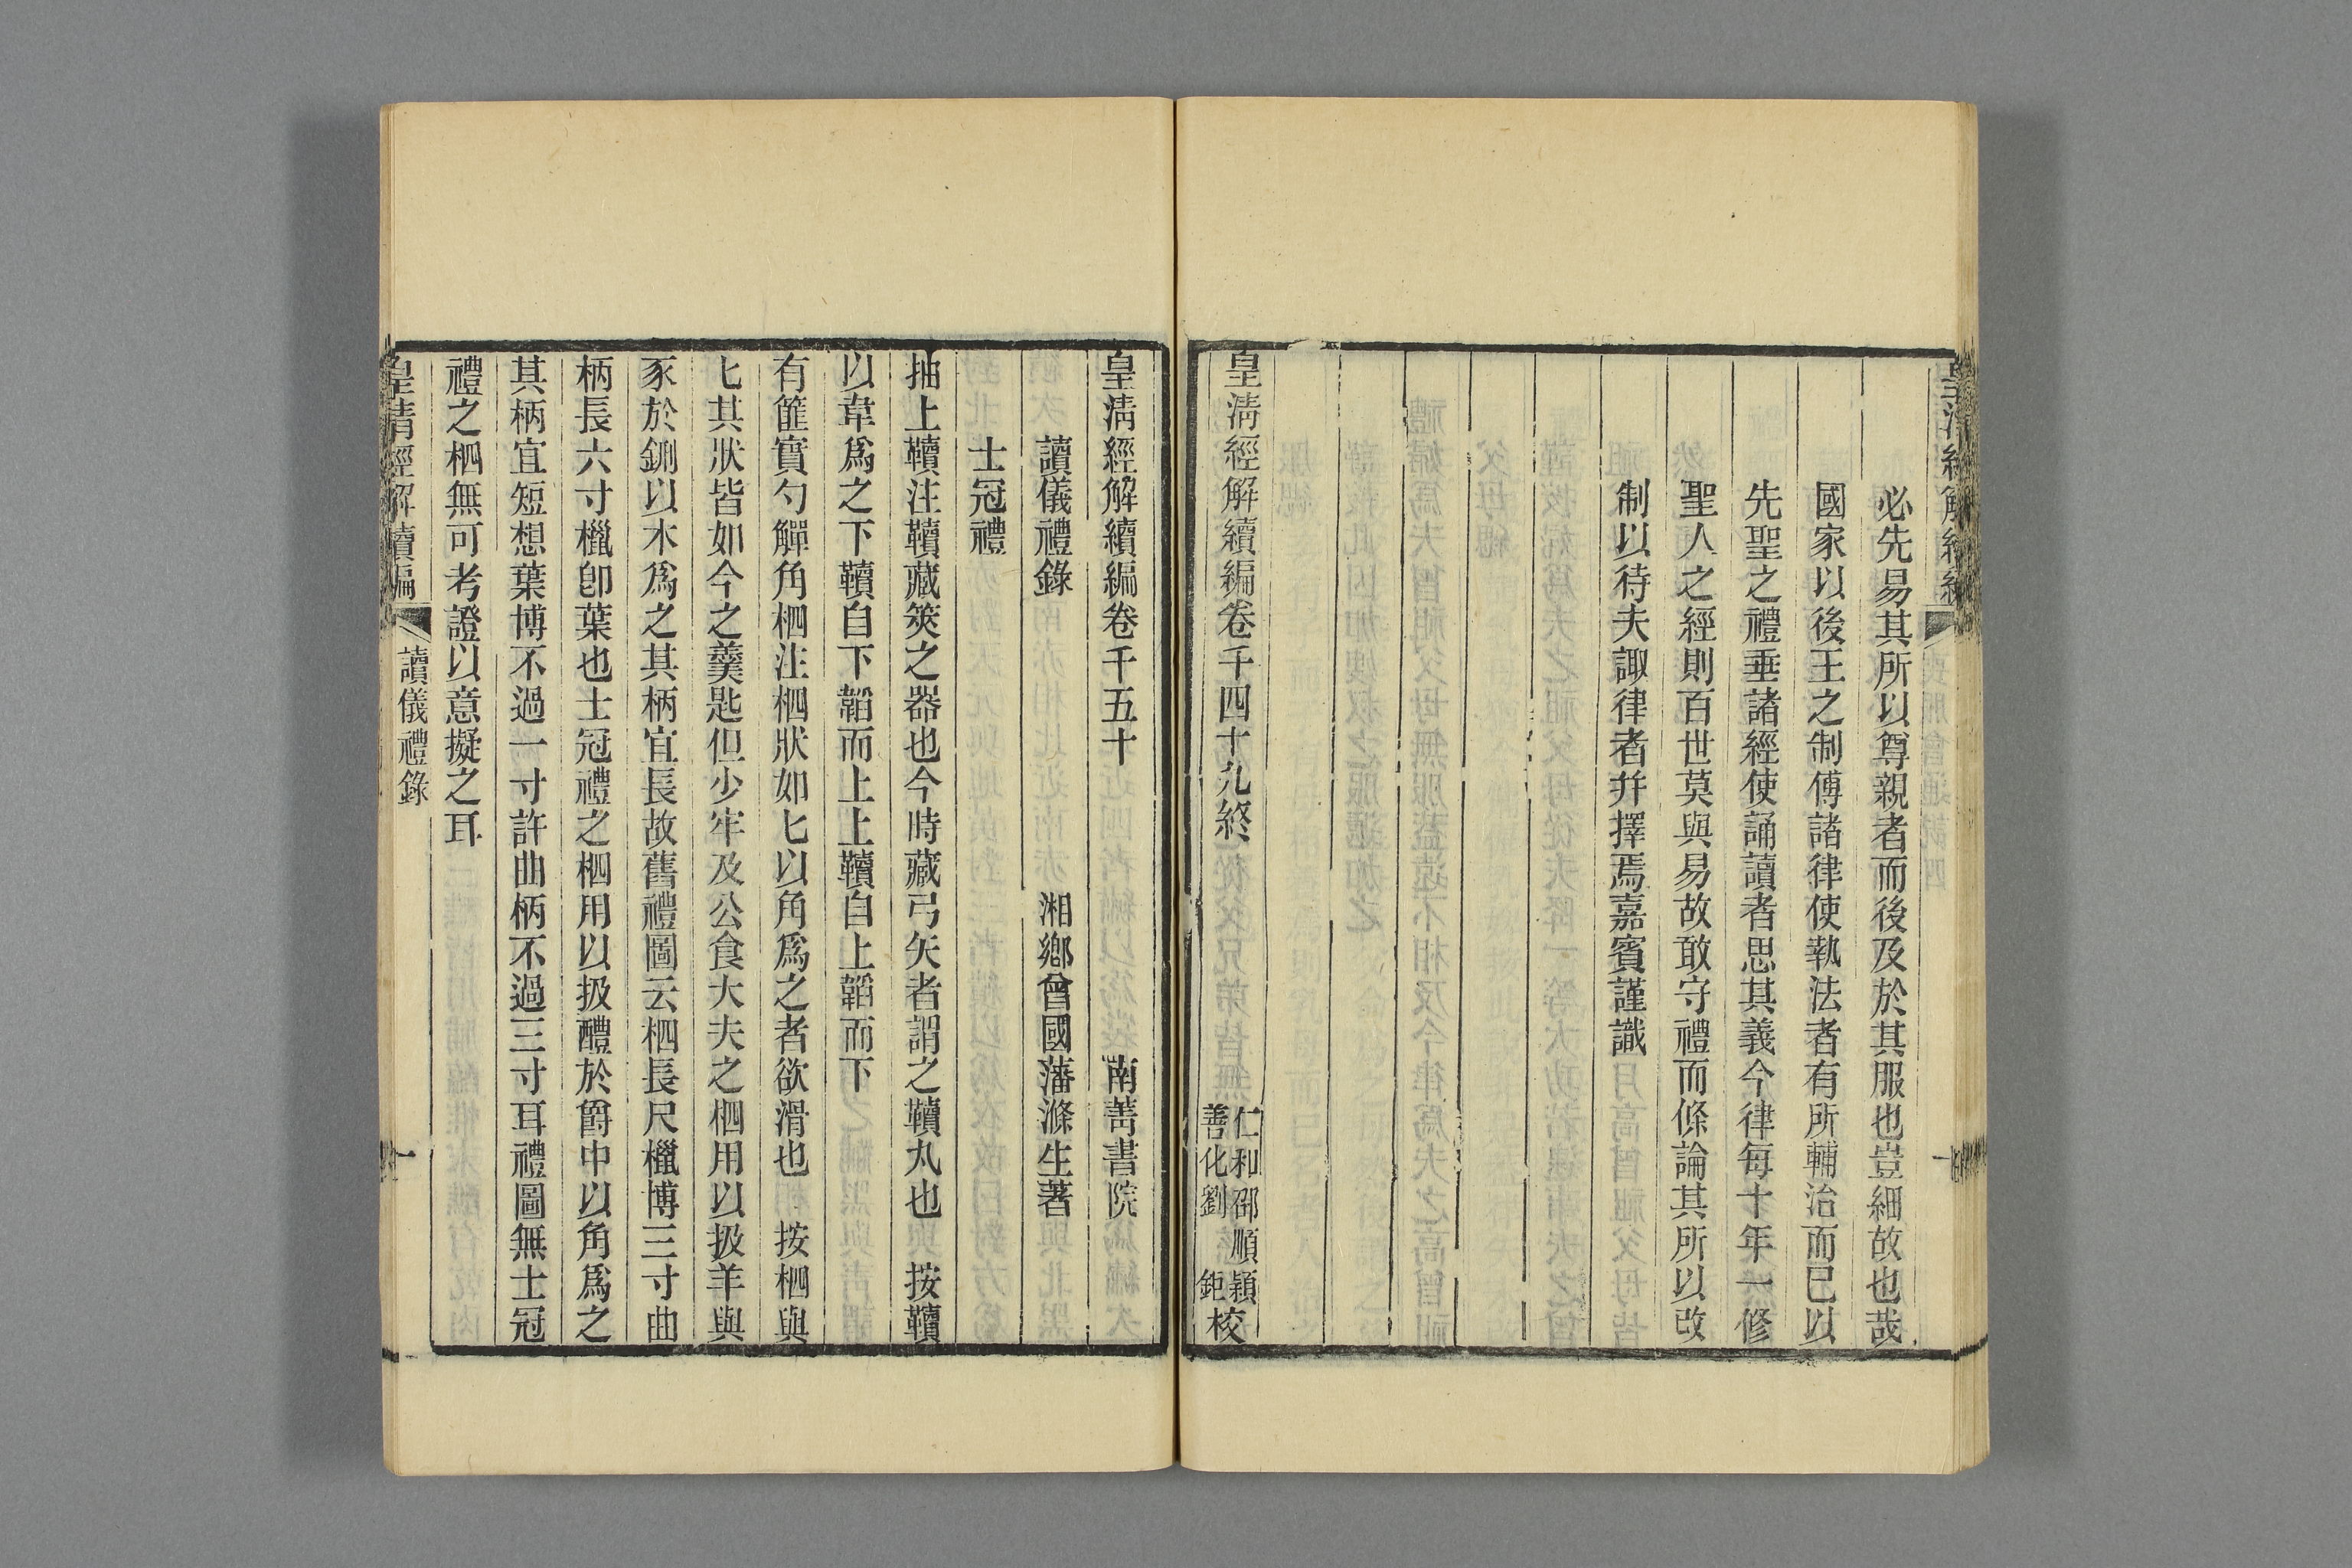 必先易其所以尊親者而後及於其服也豈細故也哉
國家以後王之制傅諸律使執法者有所輔治而已以
先聖之禮垂諸經使誦讀者思其義今律每十年一修
聖人之經則百世莫與易故敢守禮而條論其所以改
制以待夫諏律者幷擇焉嘉賓謹識
皇淸經解續編卷千四十九終
仁和邵順穎
善化劉 鉅
校
皇淸經解續編卷千五十
南菁書院
讀儀禮錄
湘鄉曾國藩滌生著
士冠禮
抽上韇注韇藏筴之器也今時藏弓矢者謂之韇丸也 按韇
以韋爲之下韇自下韜而上上韇自上韜而下
有篚實勺觶角柶注柶狀如匕以角爲之者欲滑也 按柶與
匕其狀皆如今之羹匙但少牢及公食大夫之柶用以扱羊與
豕於鉶以木爲之其柄宜長故舊禮圖云柶長尺櫼博三寸曲
柄長六寸櫼卽葉也士冠禮之柶用以扱醴於爵中以角爲之
其柄宜短想葉博不過一寸許曲柄不過三寸耳禮圖無士冠
禮之柶無可考證以意擬之耳
皇淸經解續編
讀儀禮錄
一